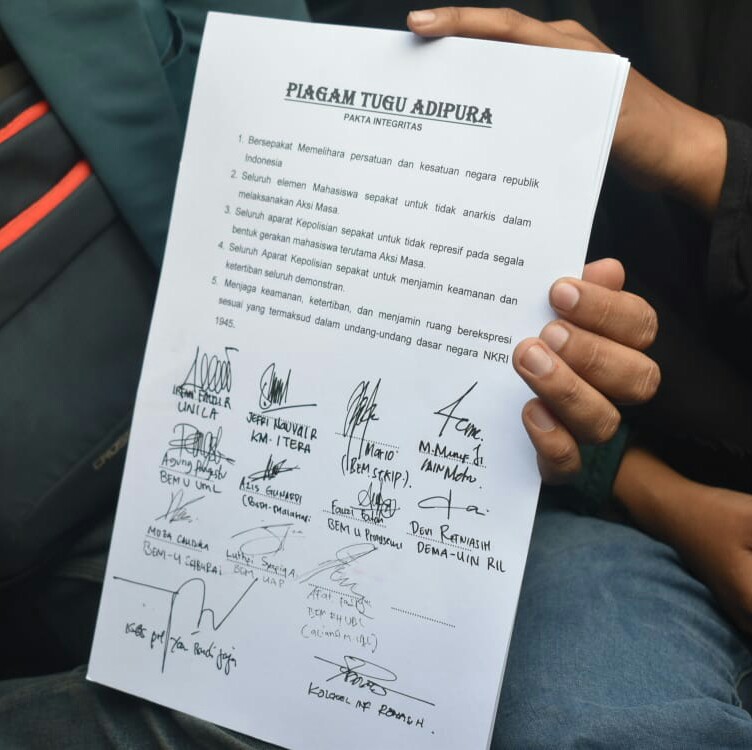 PIAGAM TUGU ADIPURA
PAKTA INTEGRITAS
1. Bersepakat Memelihara persatuan dan kesatuan negara republik
Indonesia
2. Seluruh elemen Mahasiswa sepakat untuk tidak anarkis dalam
melaksanakan Aksi Masa.
3. Seluruh aparat Kepolisian sepakat untuk tidak represif pada segala
bentuk gerakan mahasiswa terutama Aksi Masa.
4. Seluruh Aparat Kepolisian sepakat untuk menjamin keamanan dan
ketertiban seluruh demonstran.
5. Menjaga keamanan, ketertiban, dan menjamin ruang berekspresi
sesuai yang termaksud dalam undang-undang dasar negara NKRI
1945.
UNILA
JEFRI NAUVAIR
KM-ITERA
MARIO
M. Munif
IAIN Metro
Agung
BEM U UML
AZIS GUNARDI
Fauzi
BEM U
DEVI RETNIASIH
DEMA-UIN RIL
BEM-U SABURAI
Luthfi
BEM UAP
BEM FH UBL
KOLONEL INF